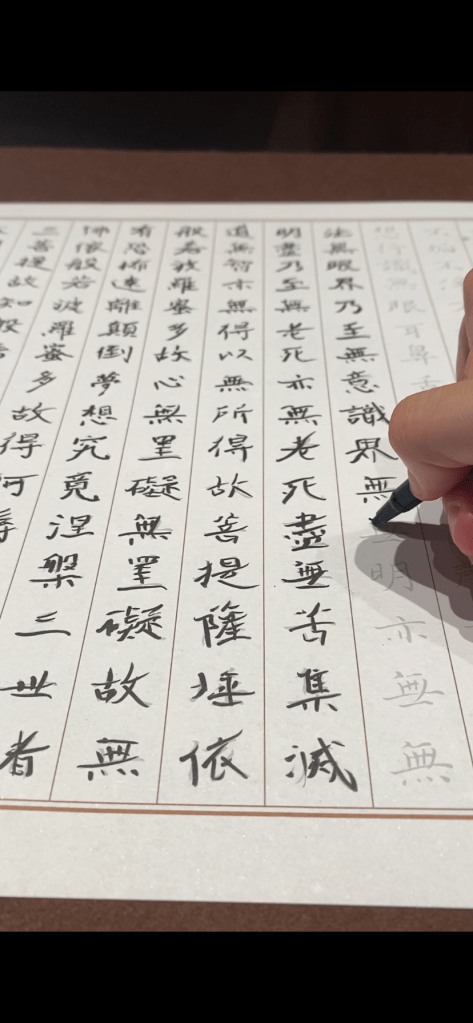 不垢不
想行識無眼耳鼻舌
法無眼界乃至無意識界無無明亦無無
明盡乃至無老死亦無老死盡無苦集滅
道無智亦無得以無所得故菩提薩埵依
般若波羅蜜多故心無罣礙無罣礙故無
有恐怖遠離顛倒夢想究竟涅槃三世
佛依般若波羅蜜多故得阿
三菩提故知般